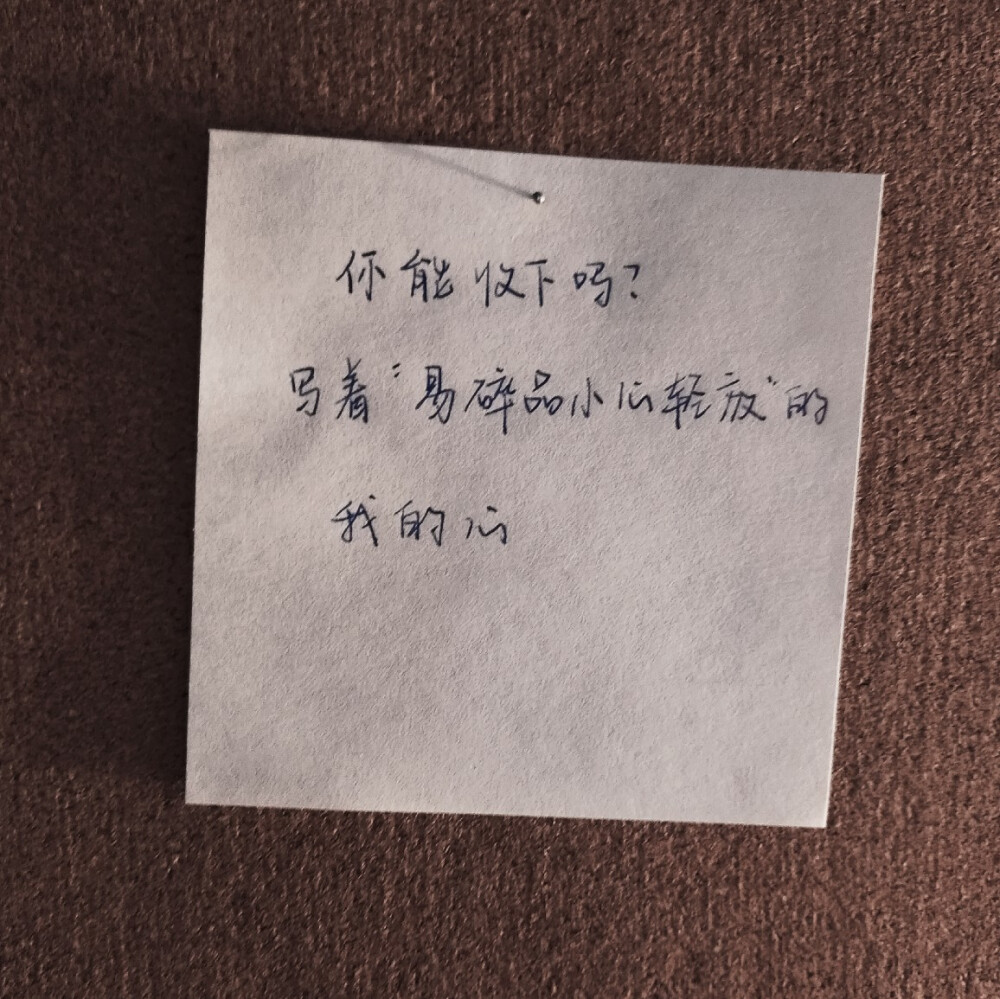 你能收下吗?
写着“易碎品小心轻放”的
我的心